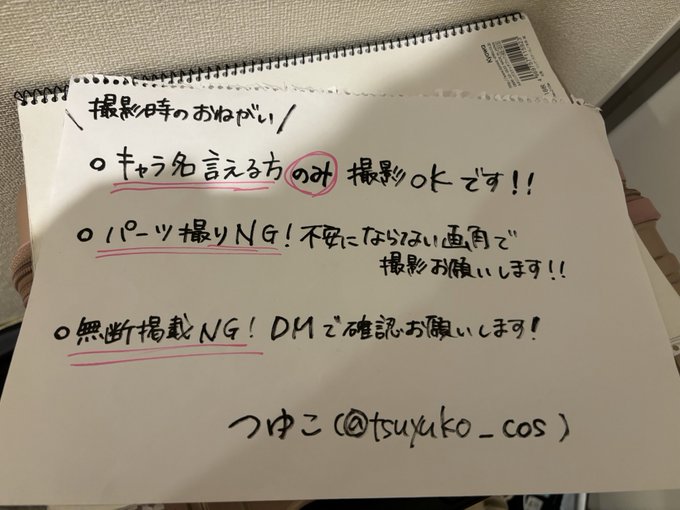 Kyowa
\撮影時のおねがい/
○ キャラ名言える方のみ撮影OKです!!
○ パーツ撮りNG!不安にならない画角で
撮影お願いします!!
○ 無断掲載NG! DMで確認お願いします!
つゆこ(@tsuyuko_cos)